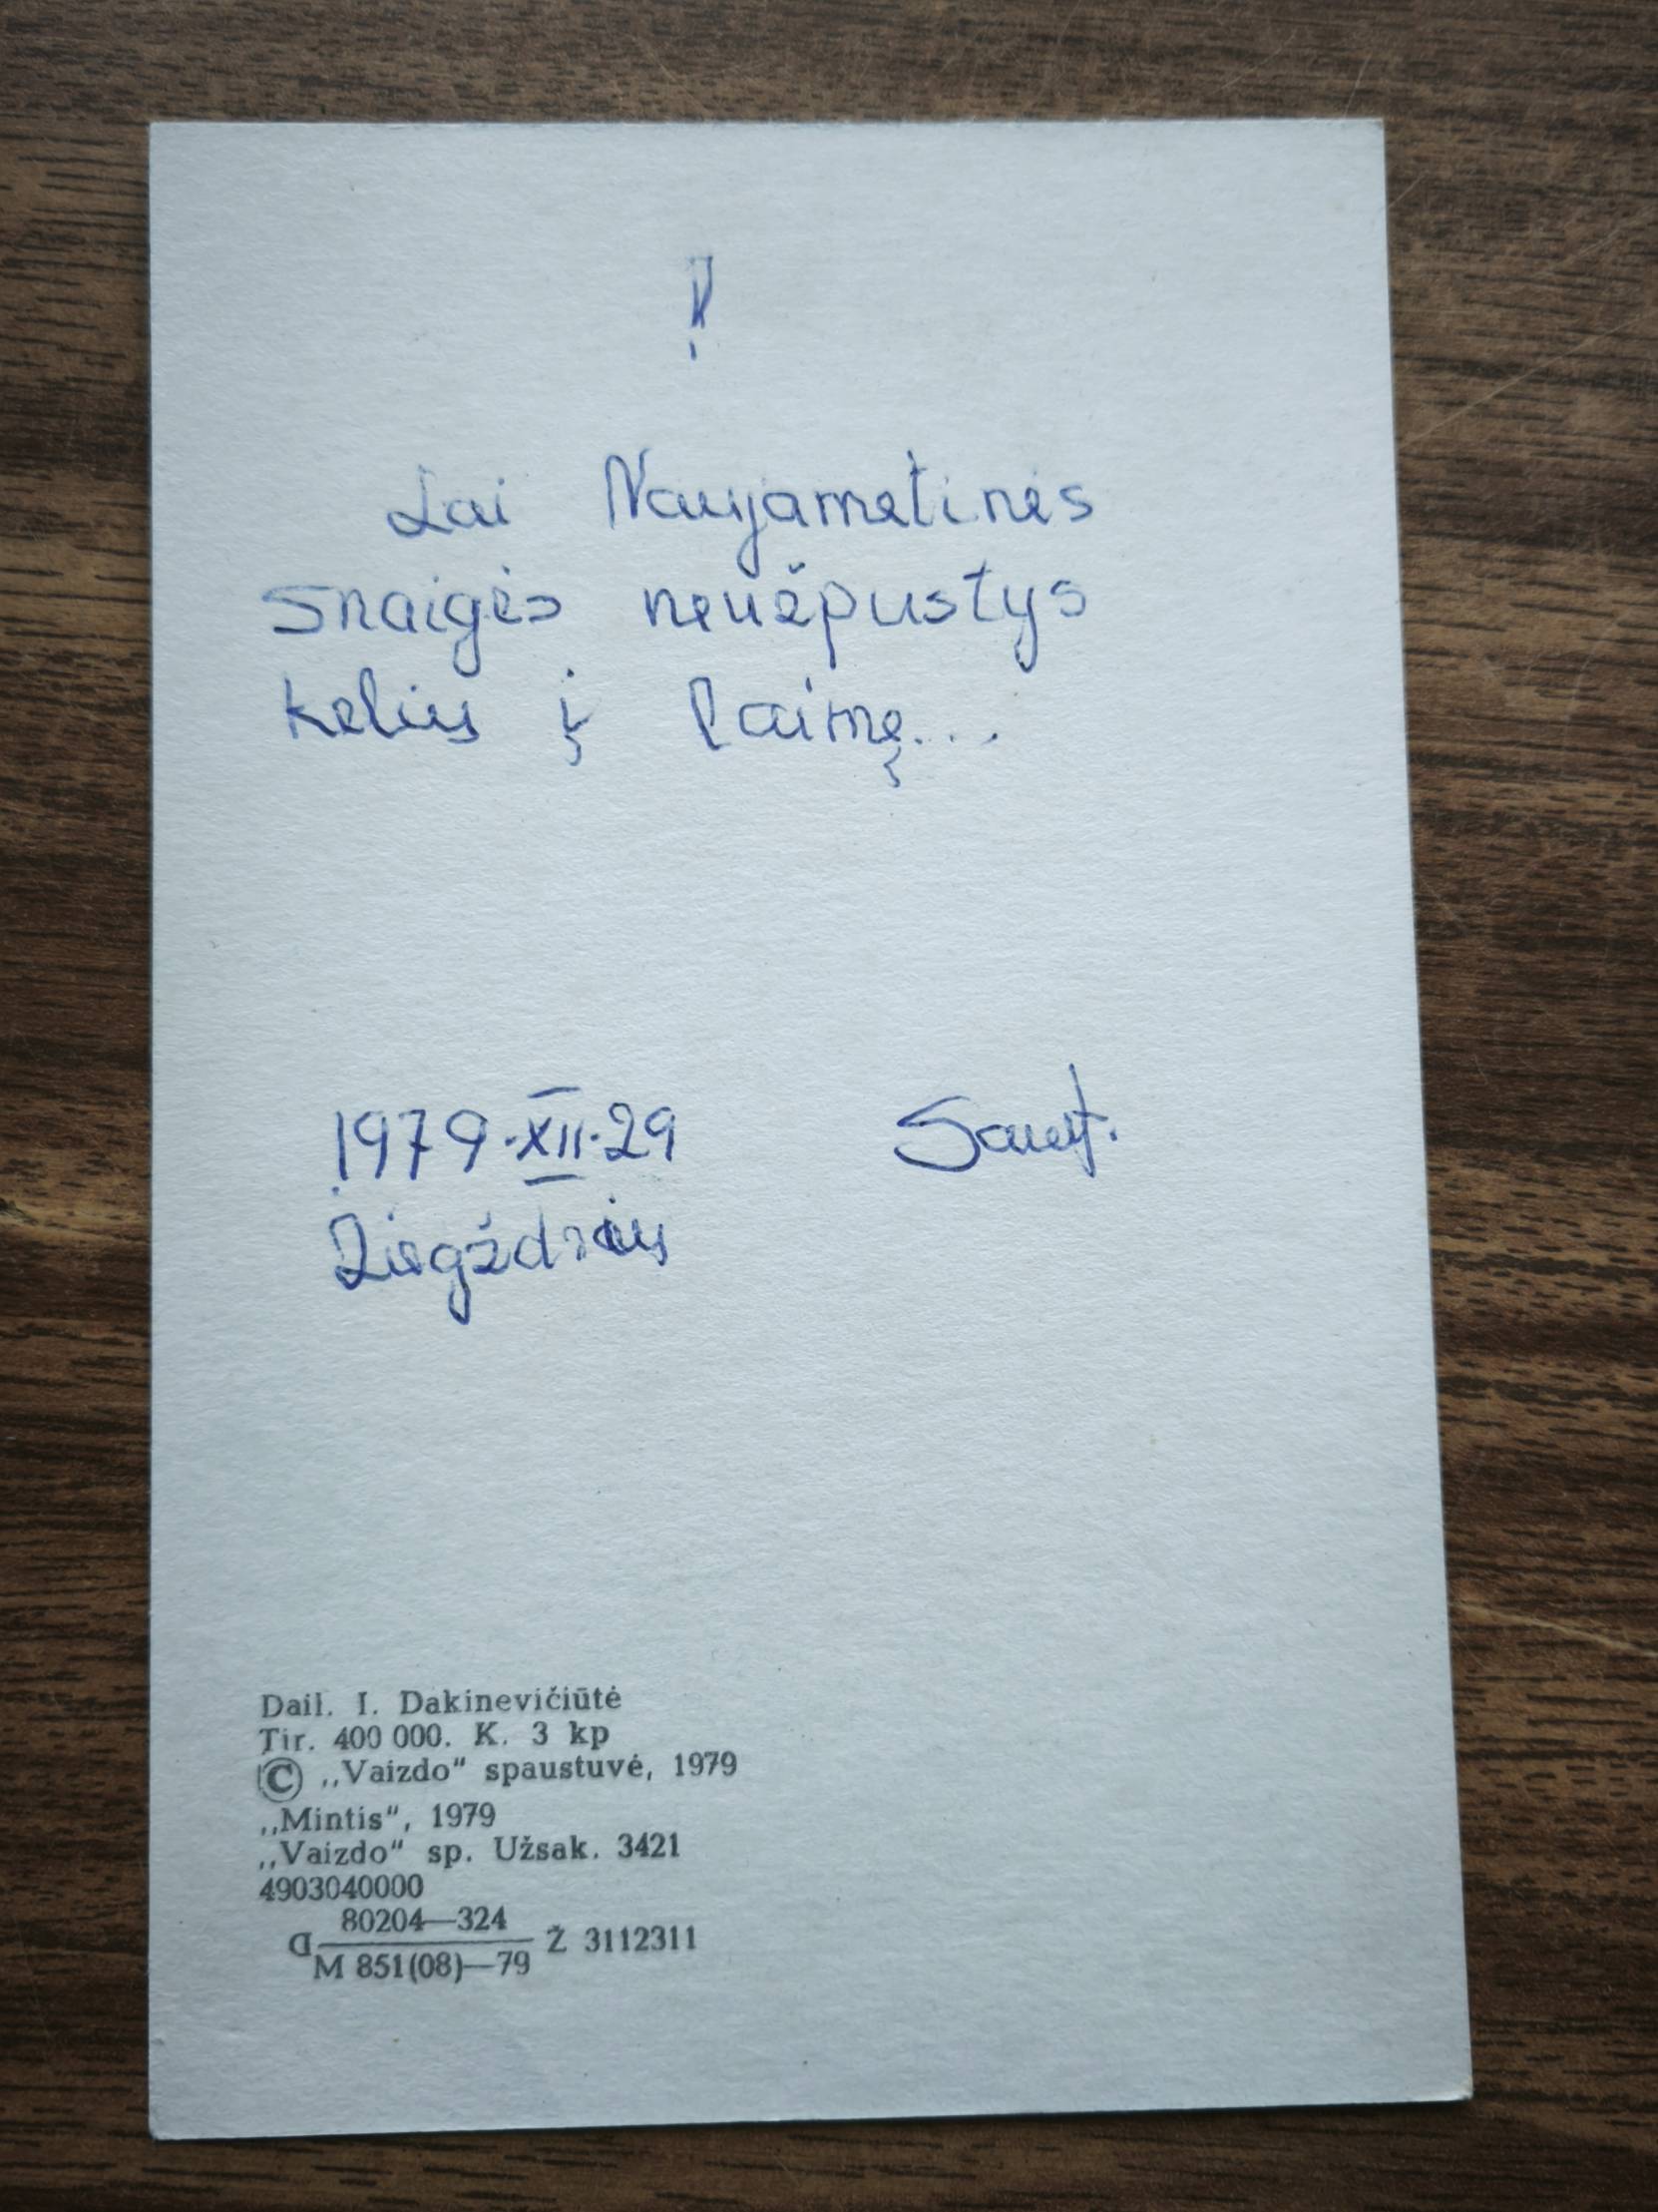 !
Lai Naujametinės
snaigės neužpustys
kelius į laimę...
1979.XII.29
Ziegždriai
Dail. I. Dakinevičiūtė
Tir. 400 000. K. 3 kp
© „Vaizdo“ spaustuvė, 1979
„Mintis“, 1979
„Vaizdo“ sp. Užsak. 3421
4903040000
80204—324
M 851(08)—79
Ž 3112311